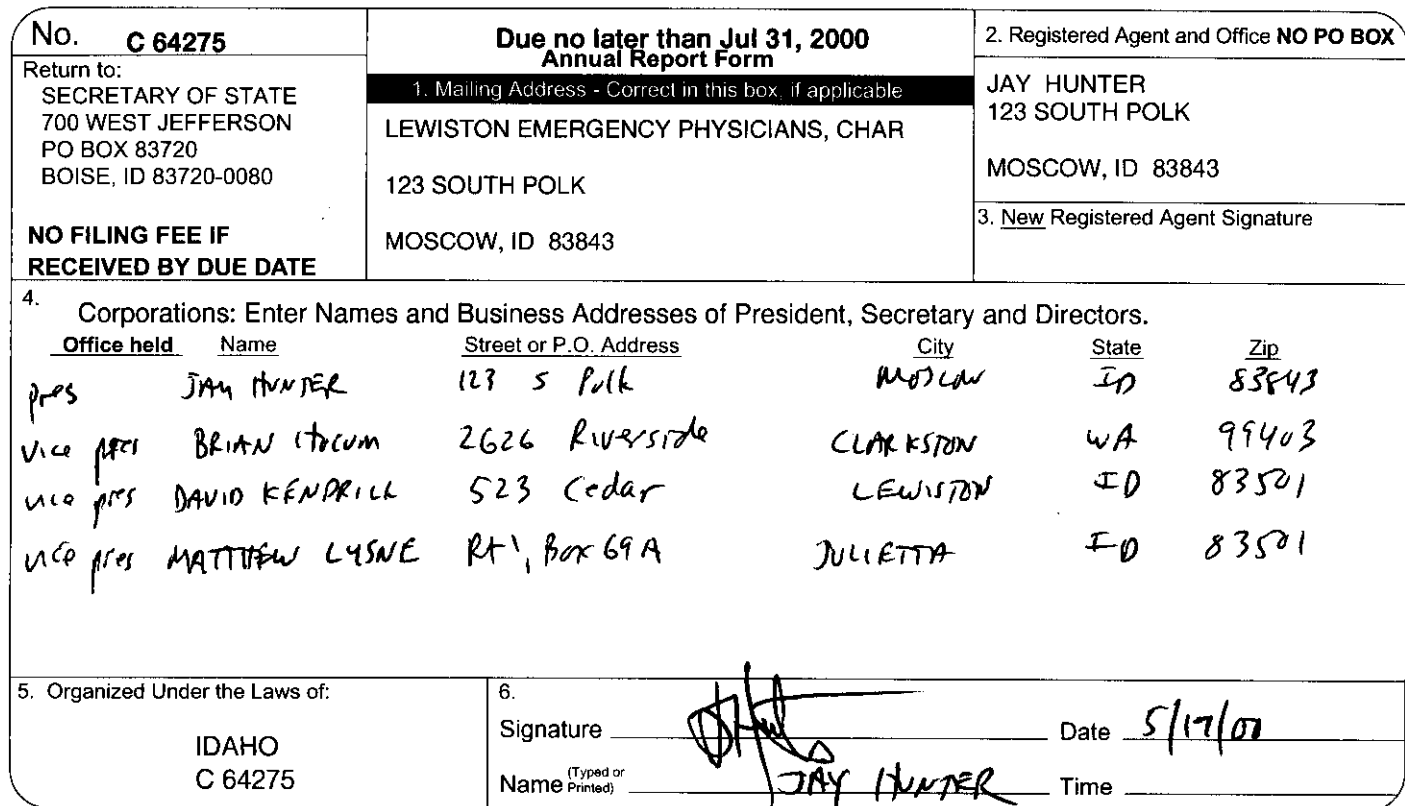 No. C 64275
Return to:
SECRETARY OF STATE
700 WEST JEFFERSON
PO BOX 83720
BOISE, ID 83720-0080
NO FILING FEE IF
RECEIVED BY DUE DATE
Due no later than Jul 31, 2000
Annual Report Form
1. Mailing Address - Correct in this box, if applicable
LEWISTON EMERGENCY PHYSICIANS, CHAR
123 SOUTH POLK
MOSCOW, ID 83843
2. Registered Agent and Office NO PO BOX
JAY HUNTER
123 SOUTH POLK
MOSCOW, ID 83843
3. New Registered Agent Signature
4. Corporations: Enter Names and Business Addresses of President, Secretary and Directors.
Office held Name Street or P.O. Address City State Zip
pres JAY HUNTER 123 S Polk Moscow ID 83843
vice pres BRIAN 2626 Riverside CLARKSTON WA 99403
vice pres DAVID KENDRICK 523 Cedar LEWISTON ID 83501
vice pres MATTHEW LYSNE Rt 1, Box 69A JULIETTA ID 83501
5. Organized Under the Laws of:
IDAHO
C 64275
6.
Signature Date 5/17/00
Name (Typed or Printed) JAY HUNTER Time